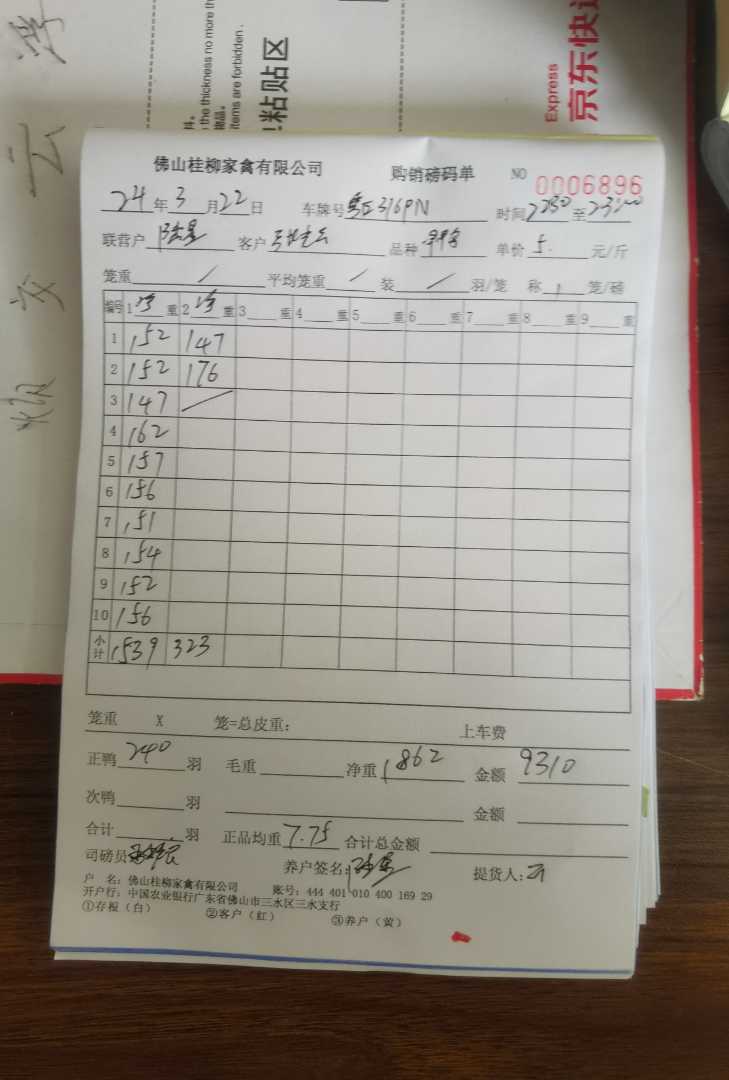 the thickness no more th
items are forbidden.
粘贴区
Express
京东快递
云
佛山桂柳家禽有限公司 购销磅码单 NO 0006896
24年3月22日 车牌号 316PN 时间2230至23:00
联营户 客户 品种 单价5. 元/斤
笼重 / 平均笼重 / 装 / 羽/笼 称 1 笼/磅
编号 1 净 重 2 净 重 3 重 4 重 5 重 6 重 7 重 8 重 9 重
1 152 147
2 152 176
3 147 /
4 162
5 157
6 156
7 151
8 154
9 152
10 156
小计 1539 323
笼重 X 笼=总皮重: 上车费
正鸭 240 羽 毛重 净重 1862 金额 9310
次鸭 羽 金额
合计 羽 正品均重 7.75 合计总金额
司磅员 养户签名: 提货人:
户 名: 佛山桂柳家禽有限公司 账号: 444 401 010 400 169 29
开户行: 中国农业银行广东省佛山市三水区三水支行
①存根(白) ②客户(红) ③养户(黄)